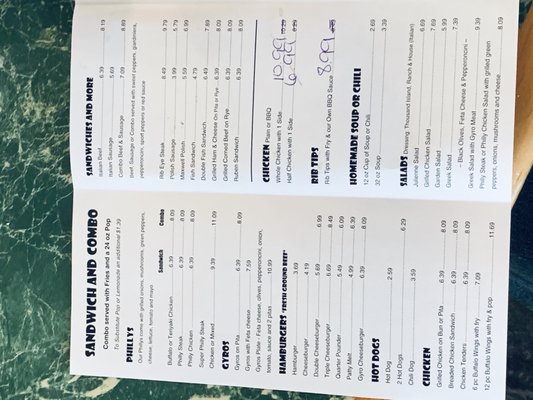 SANDWICH AND COMBO
Combo served with Fries and a 24 oz Pop
To Substitute Pop or Lemonade an additional $1.39
PHILLYS
Our Phillys come with grilled onions, mushrooms, green peppers,
cheese, lettuce, tomato and mayo
Sandwich Combo
Buffalo or Teriyaki Chicken 6.39 8.09
Philly Steak 6.39 8.09
Philly Chicken 6.39 8.09
Super Philly Steak
Chicken or Mixed 9.39 11.09
GYROS
Gyros on Pita 6.39 8.09
Gyros with Feta cheese 7.59
Gyros Plate - Feta cheese, olives, pepperoncini, onion,
tomato, sauce and 2 pitas 10.99
HAMBURGERS "FRESH GROUND BEEF"
Hamburger 3.69
Cheeseburger 4.19
Double Cheeseburger 5.69 6.99
Triple Cheeseburger 6.69 8.49
Quarter Pounder 5.49 6.09
Patty Melt 4.99 6.39
Gyro Cheeseburger 6.39 8.09
HOT DOGS
Hot Dog 2.59
2 Hot Dogs 6.29
Chili Dog 3.59
CHICKEN
Grilled Chicken on Bun or Pita 6.39 8.09
Breaded Chicken Sandwich 6.39 8.09
Chicken Tenders 6.39 8.09
6 pc Buffalo Wings with fry 7.09
12 pc Buffalo Wings with fry & pop 11.69
SANDWICHES AND MORE
Italian Beef 6.39 8.19
Italian Sausage 5.69
Combo Beef & Sausage 7.09 8.89
Beef, Sausage or Combo served with sweet peppers, giardiniera,
pepperoncini, sport peppers or red sauce
Rib Eye Steak 8.49 9.79
Polish Sausage 3.99 5.79
Maxwell Polish 5.59 6.99
Fish Sandwich 4.79
Double Fish Sandwich 6.49 7.89
Grilled Ham & Cheese On Pita or Rye 6.39 8.09
Grilled Corned Beef on Rye 6.39 8.09
Ruben Sandwich 6.39 8.09
CHICKEN Plain or BBQ
Whole Chicken with 1 Side 10.99
Half Chicken with 1 Side 6.99
RIB TIPS
Rib Tips with Fry & our Own BBQ Sauce 8.99
HOMEMADE SOUP OR CHILI
12 oz Cup of Soup or Chili 2.69
32 oz Soup 3.39
SALADS Dressing: Thousand Island, Ranch & House (Italian)
Julienne Salad 6.69
Grilled Chicken Salad 7.69
Garden Salad 5.99
Greek Salad 7.39
– Black Olives, Feta Cheese & Pepperoncini –
Greek Salad with Gyro Meat 9.39
Philly Steak or Philly Chicken Salad with grilled green
peppers, onions, mushrooms and cheese 8.09